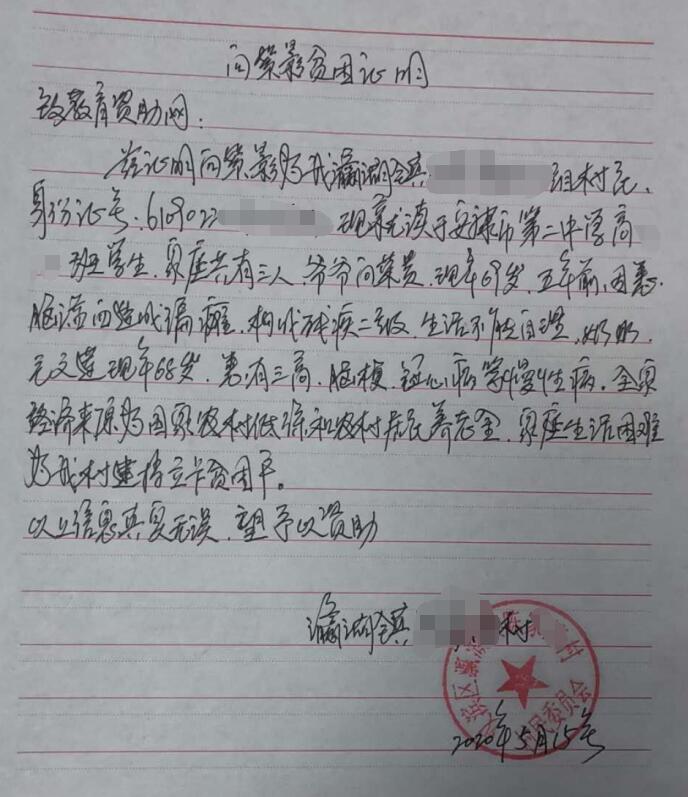 向策影贫困证明
致教育资助网:
兹证明向策影为我瀛湖镇 组村民,
身份证号:6109022 现就读于安康市第二中学高
班学生,家庭共有三人,爷爷向荣贵,现年69岁,五年前,因患
脑溢血造成偏瘫,构成残疾二级,生活不能自理,奶奶
现年68岁,患有三高,脑梗,冠心病等慢性病。全家
经济来源为国家农村低保和农村居民养老金,家庭生活困难
为我村建档立卡贫困户。
以上信息真实无误,望予以资助
瀛湖镇 村
滨区瀛湖 村 民委员会
2020年5月15号